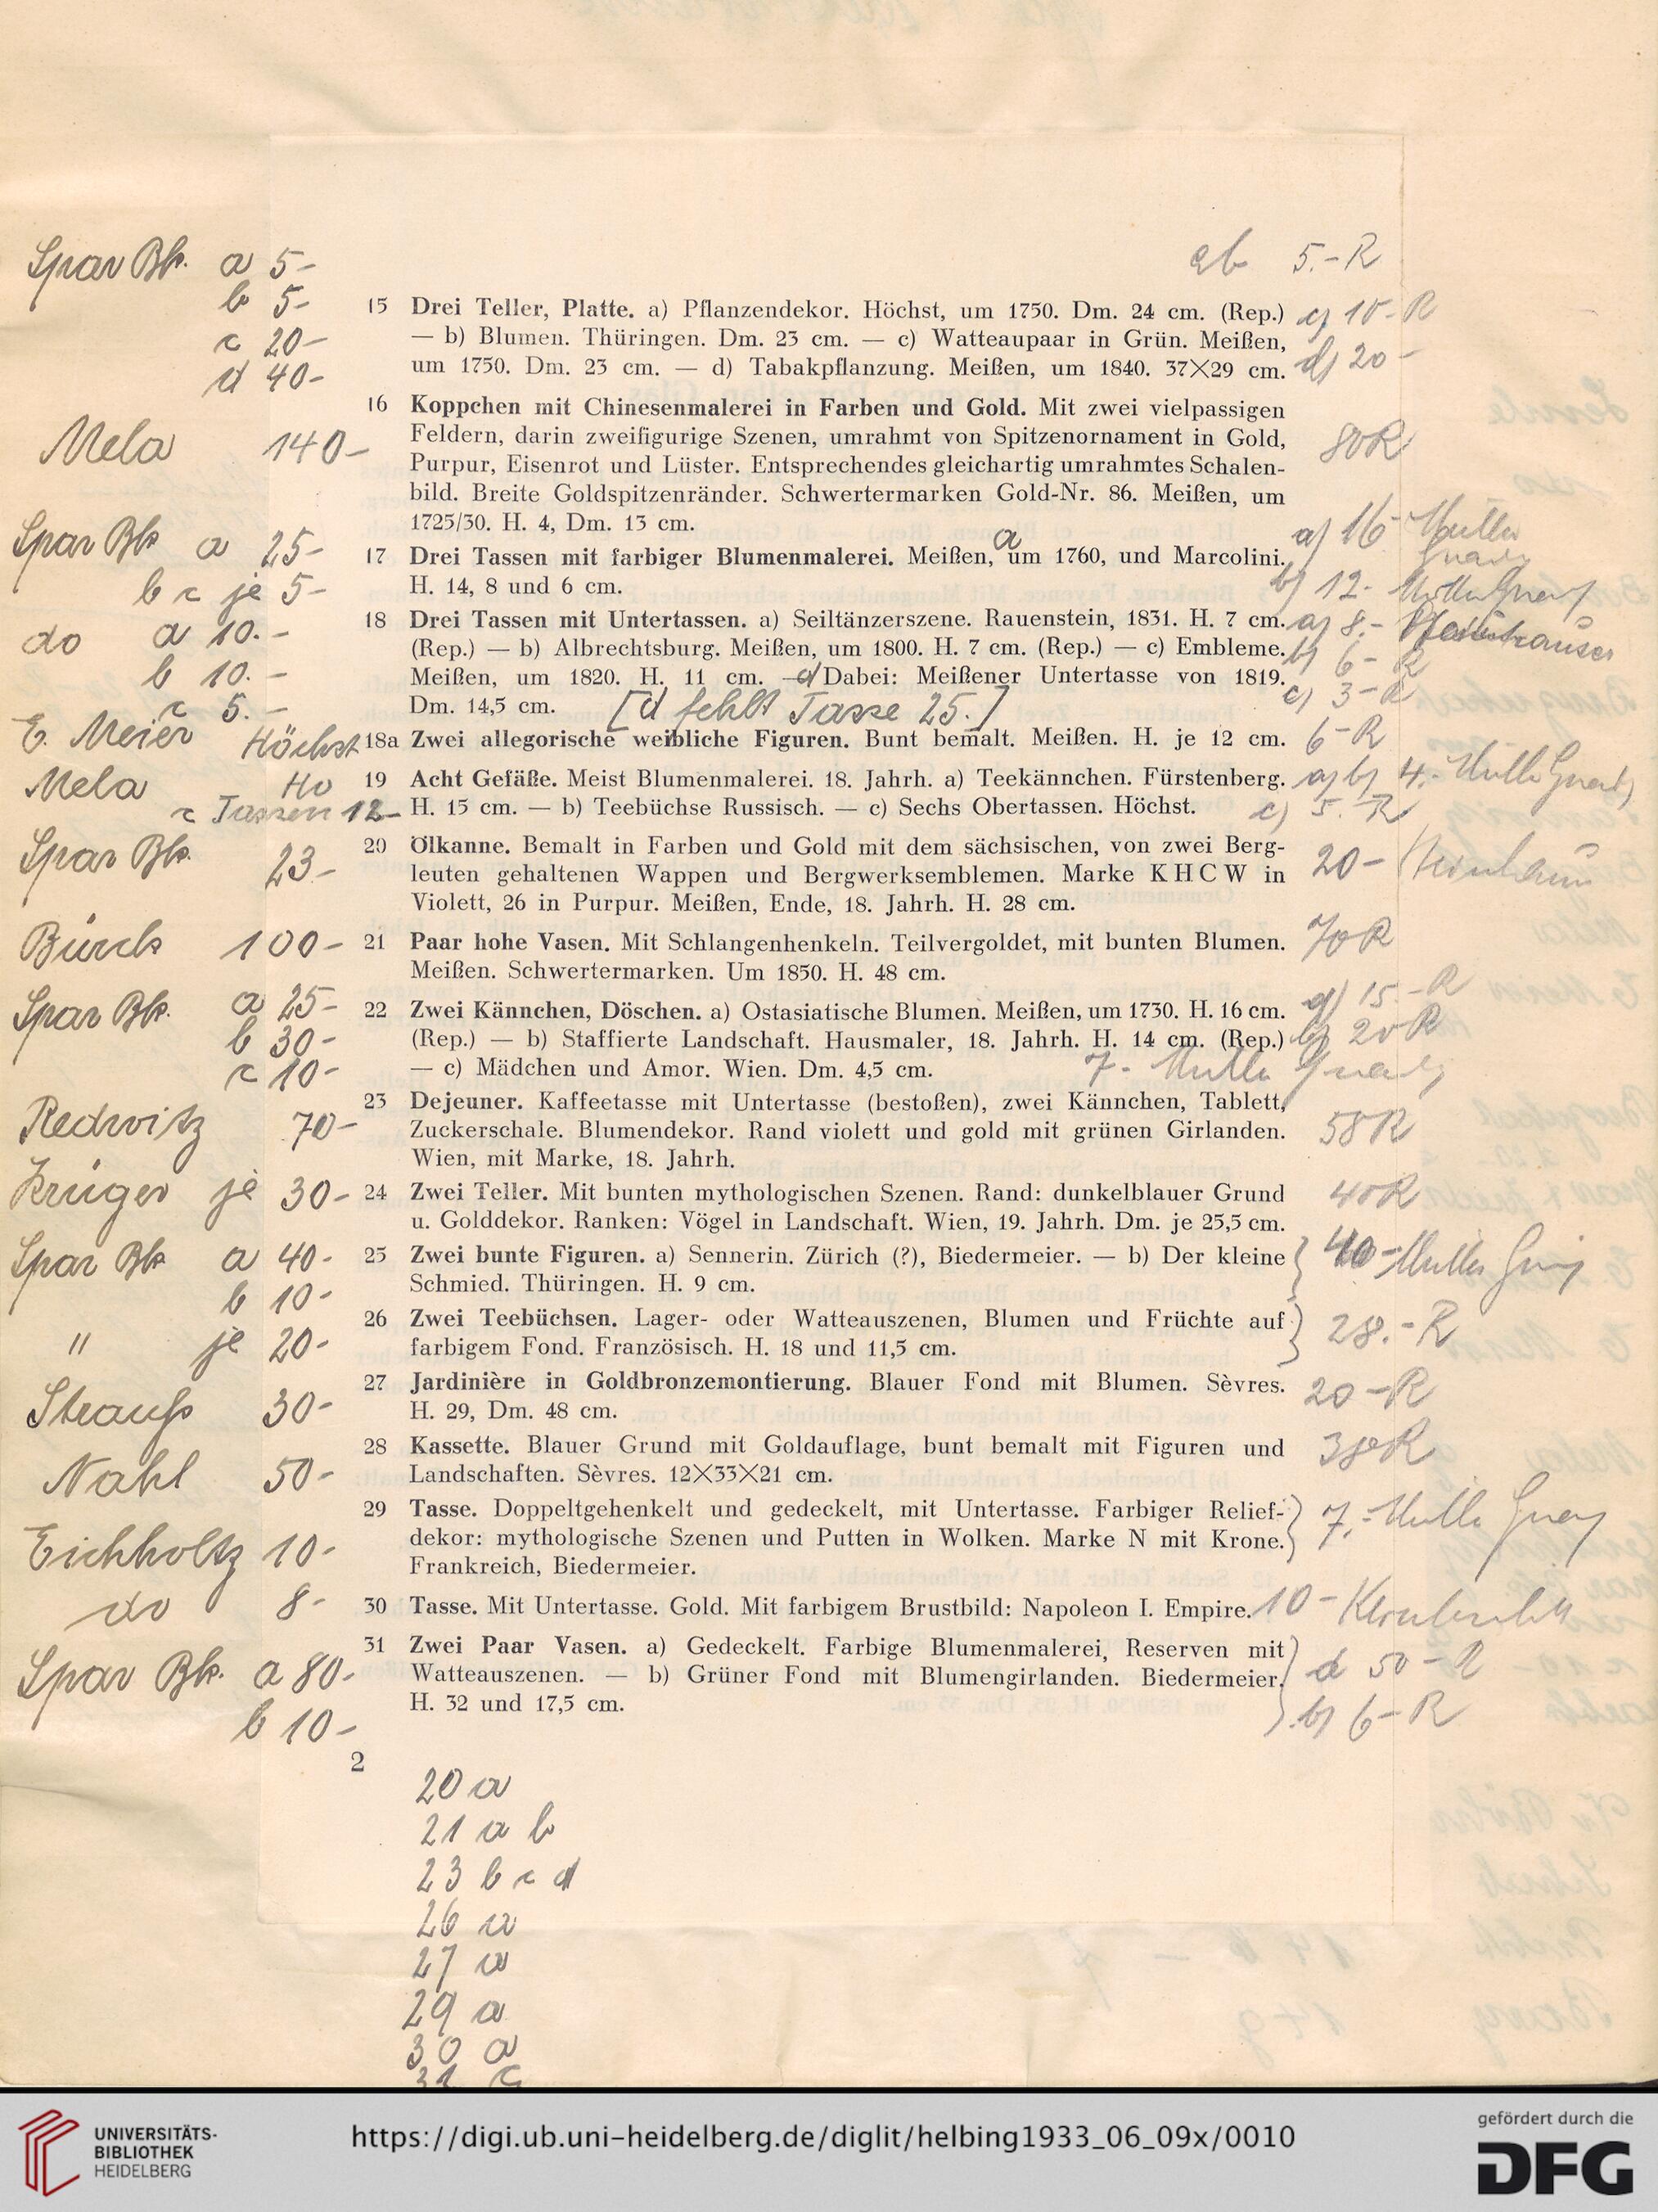 ab 5.- R
Spar Bk. a 5-
b 5-
c 20-
d 40-
15 Drei Teller, Platte. a) Pflanzendekor. Höchst, um 1750. Dm. 24 cm. (Rep.) c) 10- R
— b) Blumen. Thüringen. Dm. 23 cm. — c) Watteaupaar in Grün. Meißen,
um 1750. Dm. 23 cm. — d) Tabakpflanzung. Meißen, um 1840. 37×29 cm. d) 20-
Mela 140-
16 Koppchen mit Chinesenmalerei in Farben und Gold. Mit zwei vielpassigen
Feldern, darin zweifigurige Szenen, umrahmt von Spitzenornament in Gold, 80 R
Purpur, Eisenrot und Lüster. Entsprechendes gleichartig umrahmtes Schalen-
bild. Breite Goldspitzenränder. Schwertermarken Gold-Nr. 86. Meißen, um
1725/30. H. 4, Dm. 13 cm.
Spar Bk a 25-
b c je 5-
a
a) 16
17 Drei Tassen mit farbiger Blumenmalerei. Meißen, um 1760, und Marcolini.
H. 14, 8 und 6 cm. b) 12-
do a 10.-
b 10.-
c 5.-
18 Drei Tassen mit Untertassen. a) Seiltänzerszene. Rauenstein, 1831. H. 7 cm. a) 8.-
(Rep.) — b) Albrechtsburg. Meißen, um 1800. H. 7 cm. (Rep.) — c) Embleme. b) 6- R
Meißen, um 1820. H. 11 cm. — d Dabei: Meißener Untertasse von 1819. c) 3- R
Dm. 14,5 cm. [d fehlt Tasse 25.]
E. Meier Höchst 18a Zwei allegorische weibliche Figuren. Bunt bemalt. Meißen. H. je 12 cm. 6- R
Mela Ho 19 Acht Gefäße. Meist Blumenmalerei. 18. Jahrh. a) Teekännchen. Fürstenberg. a) b) 4.-
c Tassen 12- H. 15 cm. — b) Teebüchse Russisch. — c) Sechs Obertassen. Höchst. c) 5.- R
Spar Bk. 23-
20 Ölkanne. Bemalt in Farben und Gold mit dem sächsischen, von zwei Berg-
leuten gehaltenen Wappen und Bergwerksemblemen. Marke K H C W in 20-
Violett, 26 in Purpur. Meißen, Ende, 18. Jahrh. H. 28 cm.
Bürck 100- 21 Paar hohe Vasen. Mit Schlangenhenkeln. Teilvergoldet, mit bunten Blumen. 70 R
Meißen. Schwertermarken. Um 1850. H. 48 cm.
Spar Bk. a 25-
b 30-
c 10-
22 Zwei Kännchen, Döschen. a) Ostasiatische Blumen. Meißen, um 1730. H. 16 cm. a) 15.- R
(Rep.) — b) Staffierte Landschaft. Hausmaler, 18. Jahrh. H. 14 cm. (Rep.) b) 20 R
— c) Mädchen und Amor. Wien. Dm. 4,5 cm. 7-
Redwitz 70-
23 Dejeuner. Kaffeetasse mit Untertasse (bestoßen), zwei Kännchen, Tablett,
Zuckerschale. Blumendekor. Rand violett und gold mit grünen Girlanden. 58 R
Wien, mit Marke, 18. Jahrh.
Krüger je 30- 24 Zwei Teller. Mit bunten mythologischen Szenen. Rand: dunkelblauer Grund 40 R
u. Golddekor. Ranken: Vögel in Landschaft. Wien, 19. Jahrh. Dm. je 25,5 cm.
Spar Bk a 40-
b 10-
25 Zwei bunte Figuren. a) Sennerin. Zürich (?), Biedermeier. — b) Der kleine 40-
Schmied. Thüringen. H. 9 cm.
" je 20-
26 Zwei Teebüchsen. Lager- oder Watteauszenen, Blumen und Früchte auf 28.- R
farbigem Fond. Französisch. H. 18 und 11,5 cm.
Strauß 30-
27 Jardinière in Goldbronzemontierung. Blauer Fond mit Blumen. Sèvres. 20- R
H. 29, Dm. 48 cm.
Nahl 50-
28 Kassette. Blauer Grund mit Goldauflage, bunt bemalt mit Figuren und 38 R
Landschaften. Sèvres. 12×33×21 cm.
Eichholtz 10-
29 Tasse. Doppeltgehenkelt und gedeckelt, mit Untertasse. Farbiger Relief- 7.-
dekor: mythologische Szenen und Putten in Wolken. Marke N mit Krone.
Frankreich, Biedermeier.
do 8- 30 Tasse. Mit Untertasse. Gold. Mit farbigem Brustbild: Napoleon I. Empire. 10-
Spar Bk. a 80-
b 10-
31 Zwei Paar Vasen. a) Gedeckelt. Farbige Blumenmalerei, Reserven mit
Watteauszenen. — b) Grüner Fond mit Blumengirlanden. Biedermeier. 50- R
H. 32 und 17,5 cm. b) 6- R
2
20 a
21 a b
23 b c d
26 a
27 a
29 a
30 a
31 c
UNIVERSITÄTS-
BIBLIOTHEK
HEIDELBERG
https://digi.ub.uni-heidelberg.de/diglit/helbing1933_06_09x/0010
gefördert durch die
DFG